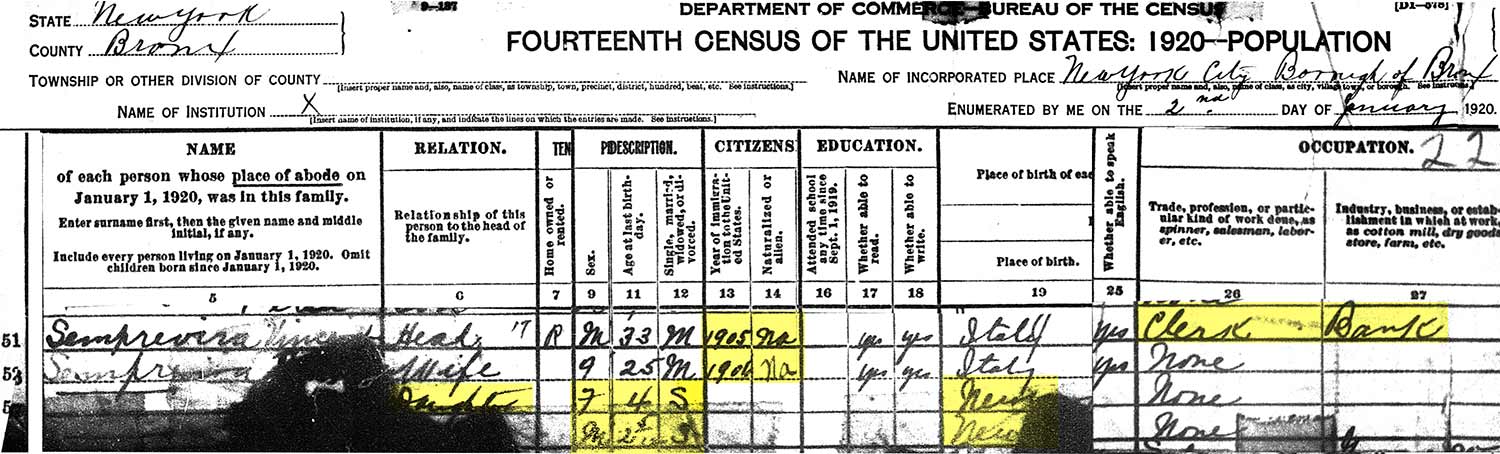 STATE New York
COUNTY Bronx
TOWNSHIP OR OTHER DIVISION OF COUNTY
[Insert proper name and, also, name of class, as township, town, precinct, district, hundred, beat, etc. See instructions.]
NAME OF INSTITUTION X
[Insert name of institution, if any, and indicate the lines on which the entries are made. See instructions.]
9-137
DEPARTMENT OF COMMERCE—BUREAU OF THE CENSUS
[D1-578]
FOURTEENTH CENSUS OF THE UNITED STATES: 1920—POPULATION
NAME OF INCORPORATED PLACE New York City Borough of Bronx
[Insert proper name and, also, name of class, as city, village, town, or borough. See instructions.]
ENUMERATED BY ME ON THE 2nd DAY OF January 1920.
NAME
of each person whose place of abode on
January 1, 1920, was in this family.
Enter surname first, then the given name and middle
initial, if any.
Include every person living on January 1, 1920. Omit
children born since January 1, 1920.
RELATION.
Relationship of this
person to the head of
the family.
TEN
Home owned or
rented.
DESCRIPTION.
Sex.
Age at last birth-
day.
Single, married,
widowed, or di-
vorced.
CITIZENS
Year of immigra-
tion to the Unit-
ed States.
Naturalized or
alien.
EDUCATION.
Attended school
any time since
Sept. 1, 1919.
Whether able to
read.
Whether able to
write.
Place of birth of eac
Place of birth.
Whether able to speak
English.
OCCUPATION. 22
Trade, profession, or partic-
ular kind of work done, as
spinner, salesman, labor-
er, etc.
Industry, business, or estab-
lishment in which at work,
as cotton mill, dry goods
store, farm, etc.
5 6 7 9 11 12 13 14 16 17 18 19 25 26 27
51 Semprevira Head 17 R M 33 M 1905 Na yes yes Italy yes Clerk Bank
52 Wife F 25 M Na yes yes Italy yes None
F 4 S New None
M New None